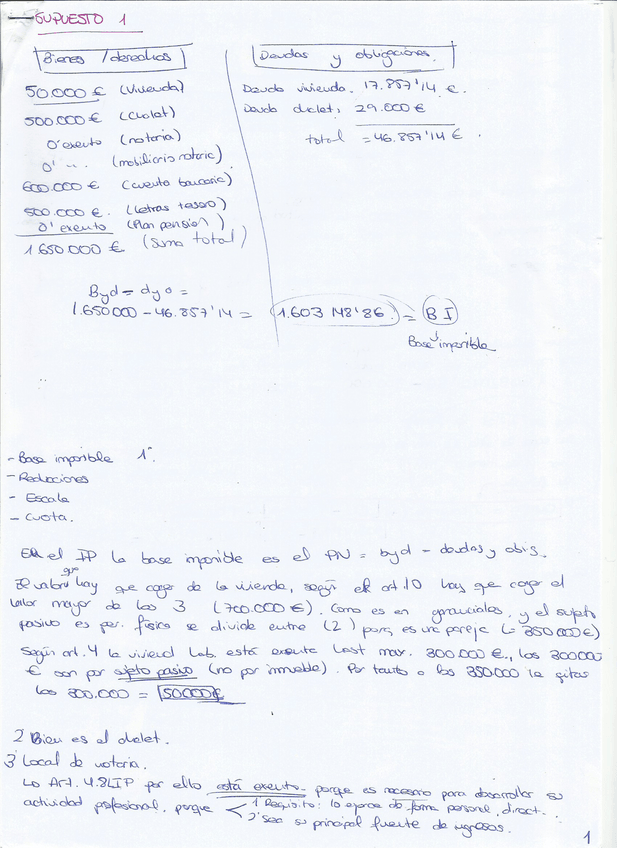 SUPUESTO 1
Bienes / derechos
Deudas y obligaciones.
50.000 € (Vivienda)
Deuda vivienda. 17.857'14 €.
500.000 € (Chalet)
Deuda chalet: 29.000 €
0' exento (notaria)
total = 46.857'14 €.
0' " .. (mobiliario notaric)
600.000 € (cuenta bancaria)
500.000 €. (Letras tesoro)
0' exento (Plan pensión)
1.650.000 € (Suma total)
Byd = dyo =
1.650.000 - 46.857'14 = 1.603 148'86. = B I
Base imponible
- Base imponible 1º.
- Reduciones
- Escala
- Cuota.
En el IP la base imponible es el PN = byd - deudas y obls.
El valor que hay que coger de la vivienda, según el art.10 hay que coger el
valor mayor de los 3 (700.000 €). Como es en gananciales, y el sujeto
pasivo es per. física se divide entre (2) pars, es una pareja (= 350.000 €)
Según art. 4 la viviend hab. está exenta hast max. 300.000 €., los 300.000
€ son por sujeto pasivo (no por inmueble). Por tanto a los 350.000 le qitas
los 300.000 = 50000€
2 Bien es el chalet.
3 Local de notaria.
Lo Art. 4.8 LIP por ello está exento. porque es necesario para desarrollar su
actividad profesional. porque
1 Requisito: lo ejerce de forma personal, direct..
2 sea su principal fuente de ingresos.
1